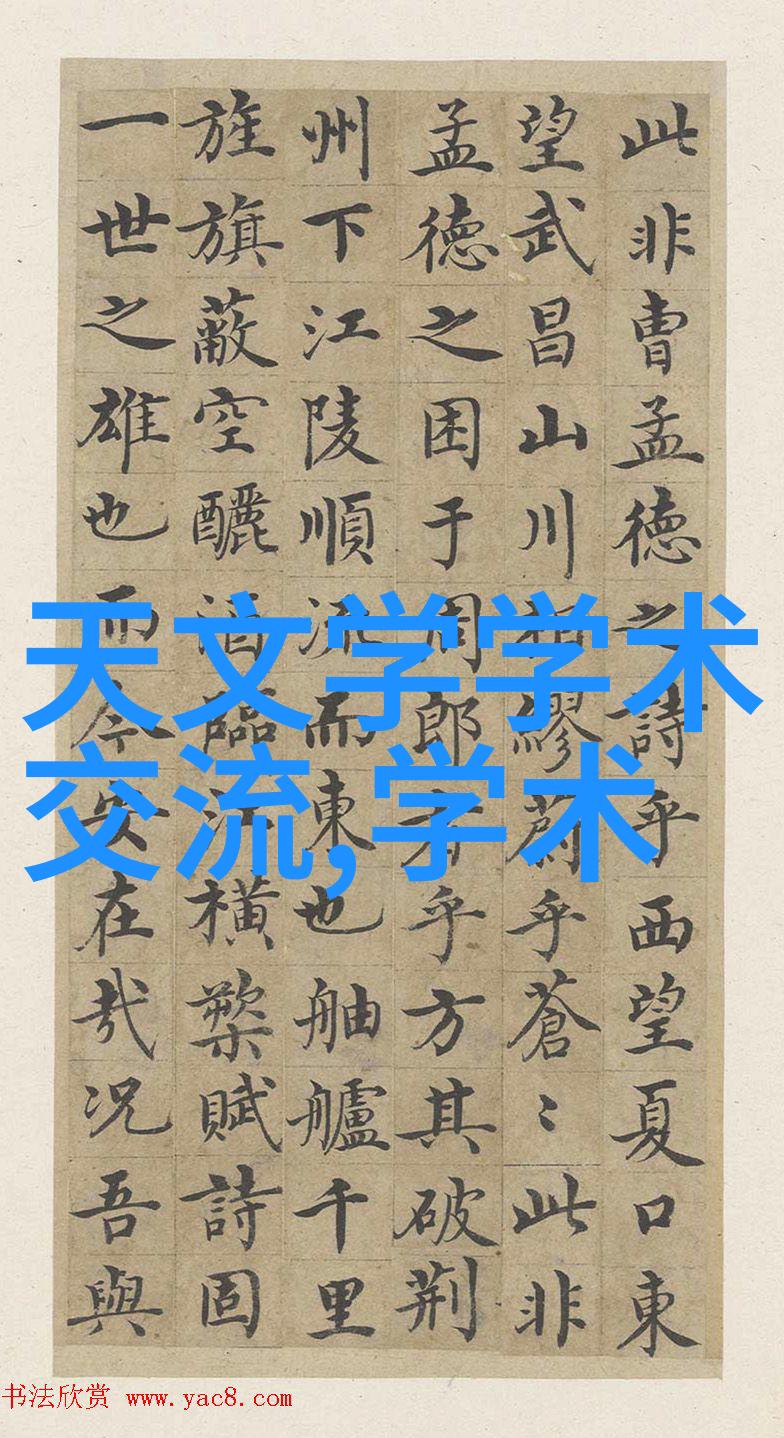 此非曹孟德之詩乎西望夏口東
望武昌山川相繆蔚乎蒼〻此非
孟德之困于周郎者乎方其破荆
州下江陵順流而東也舳艫千里
旌旗蔽空釃酒臨江横槊賦詩固
一世之雄也而今安在哉况吾與
天文学学术
交流,学术
书法欣赏 www.yac8.com